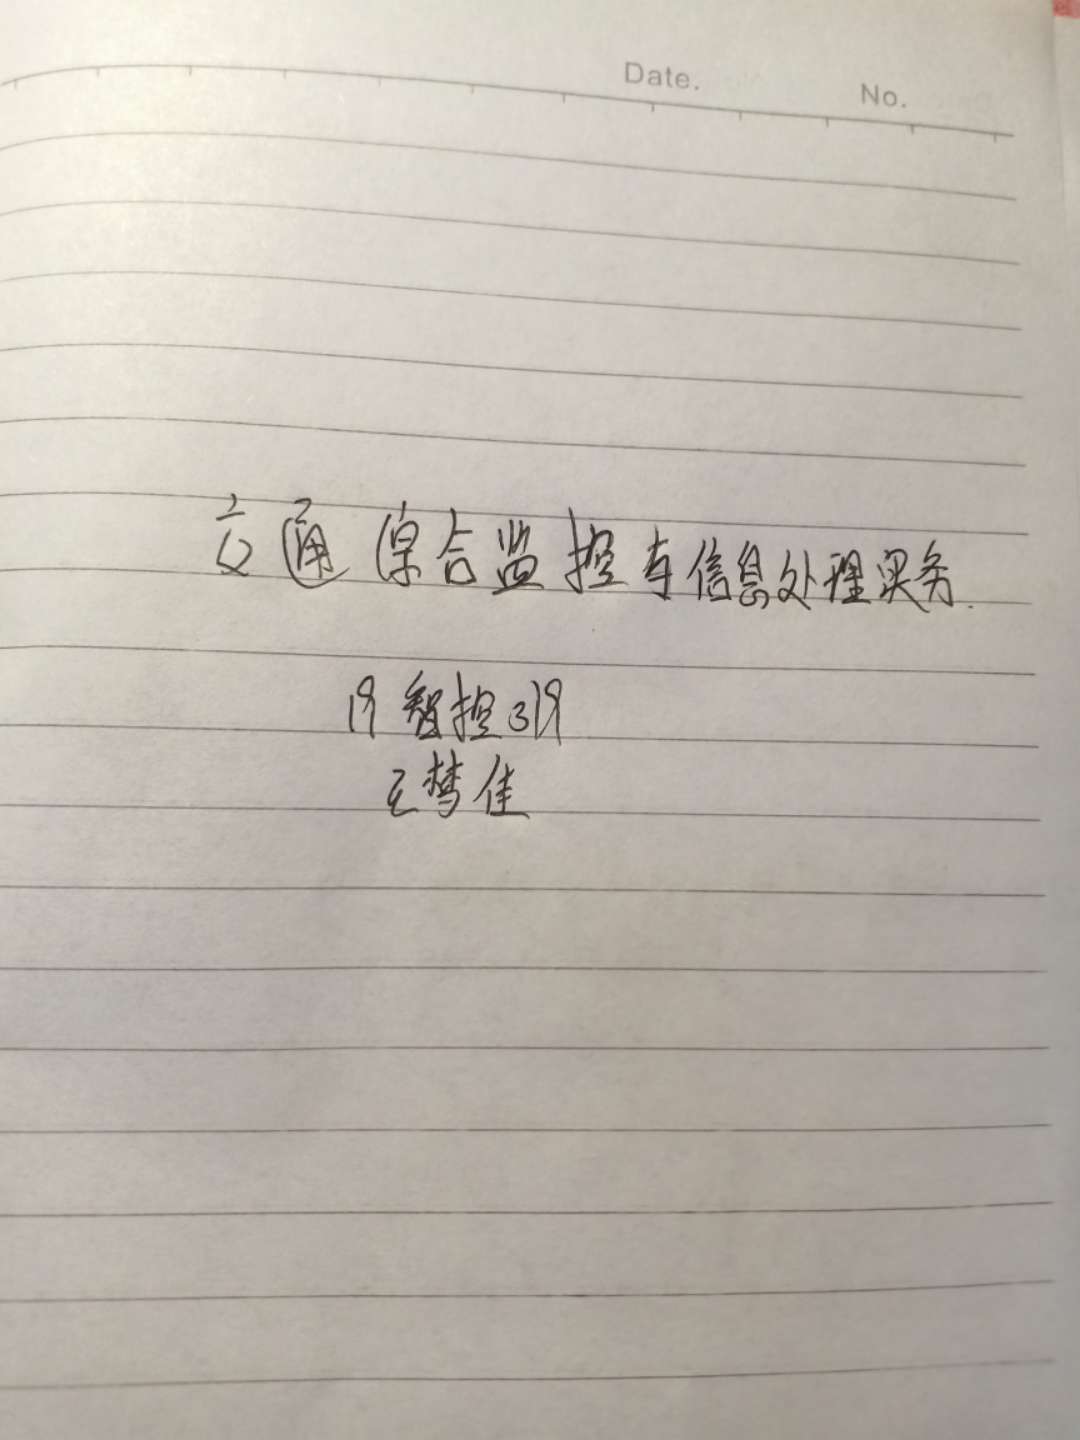 Date. No.
交通综合监控与信息处理实务.
19智控319
王梦佳